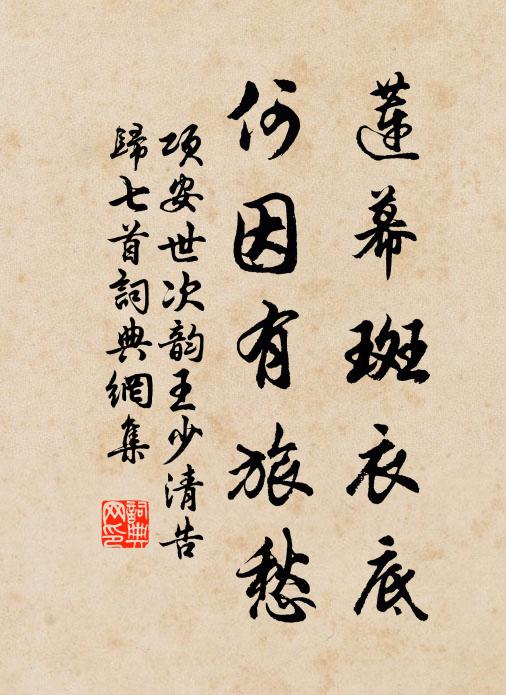 蓮幕斑衣底
何因有旅愁
項安世次韵王少清告
歸七首詞典網集
詞典
网印